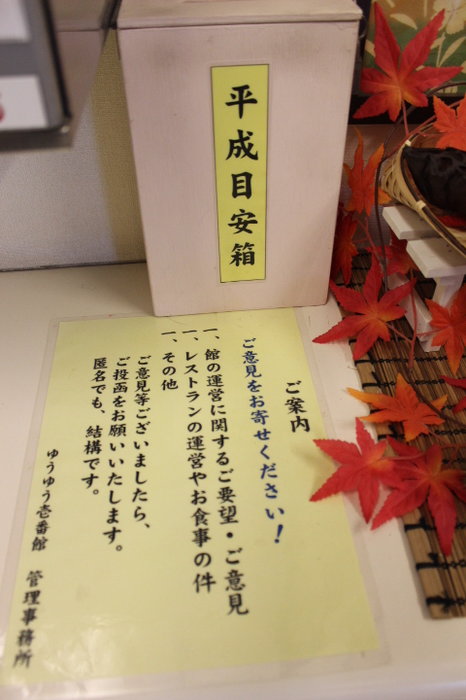 平成目安箱
ご案内
ご意見をお寄せください!
一、館の運営に関するご要望・ご意見
一、レストランの運営やお食事の件
一、その他
ご意見等ございましたら、
ご投函をお願いいたします。
匿名でも、結構です。
ゆうゆう壱番館 管理事務所